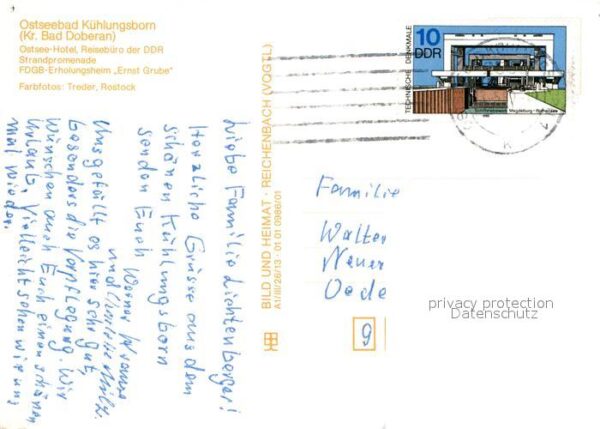 Ostseebad Kühlungsborn
(Kr. Bad Doberan)
Ostsee-Hotel, Reisebüro der DDR
Strandpromenade
FDGB-Erholungsheim „Ernst Grube"
Farbfotos: Treder, Rostock
TECHNISCHE DENKMALE
10
DDR
Magdeburg - Rothensee
BILD UND HEIMAT · REICHENBACH (VOGTL)
A1/III/26/13 · 01 01 0986/01
Liebe Familie Lichtenberger!
Herzliche Grüsse aus dem
schönen Kühlungsborn
senden Euch
Werner
und
Uns gefällt es hier sehr gut,
besonders die Verpflegung. Wir
wünschen auch Euch einen schönen
Urlaub, Vielleicht sehen wir uns
mal wieder.
Familie
Walter
9
privacy protection
Datenschutz